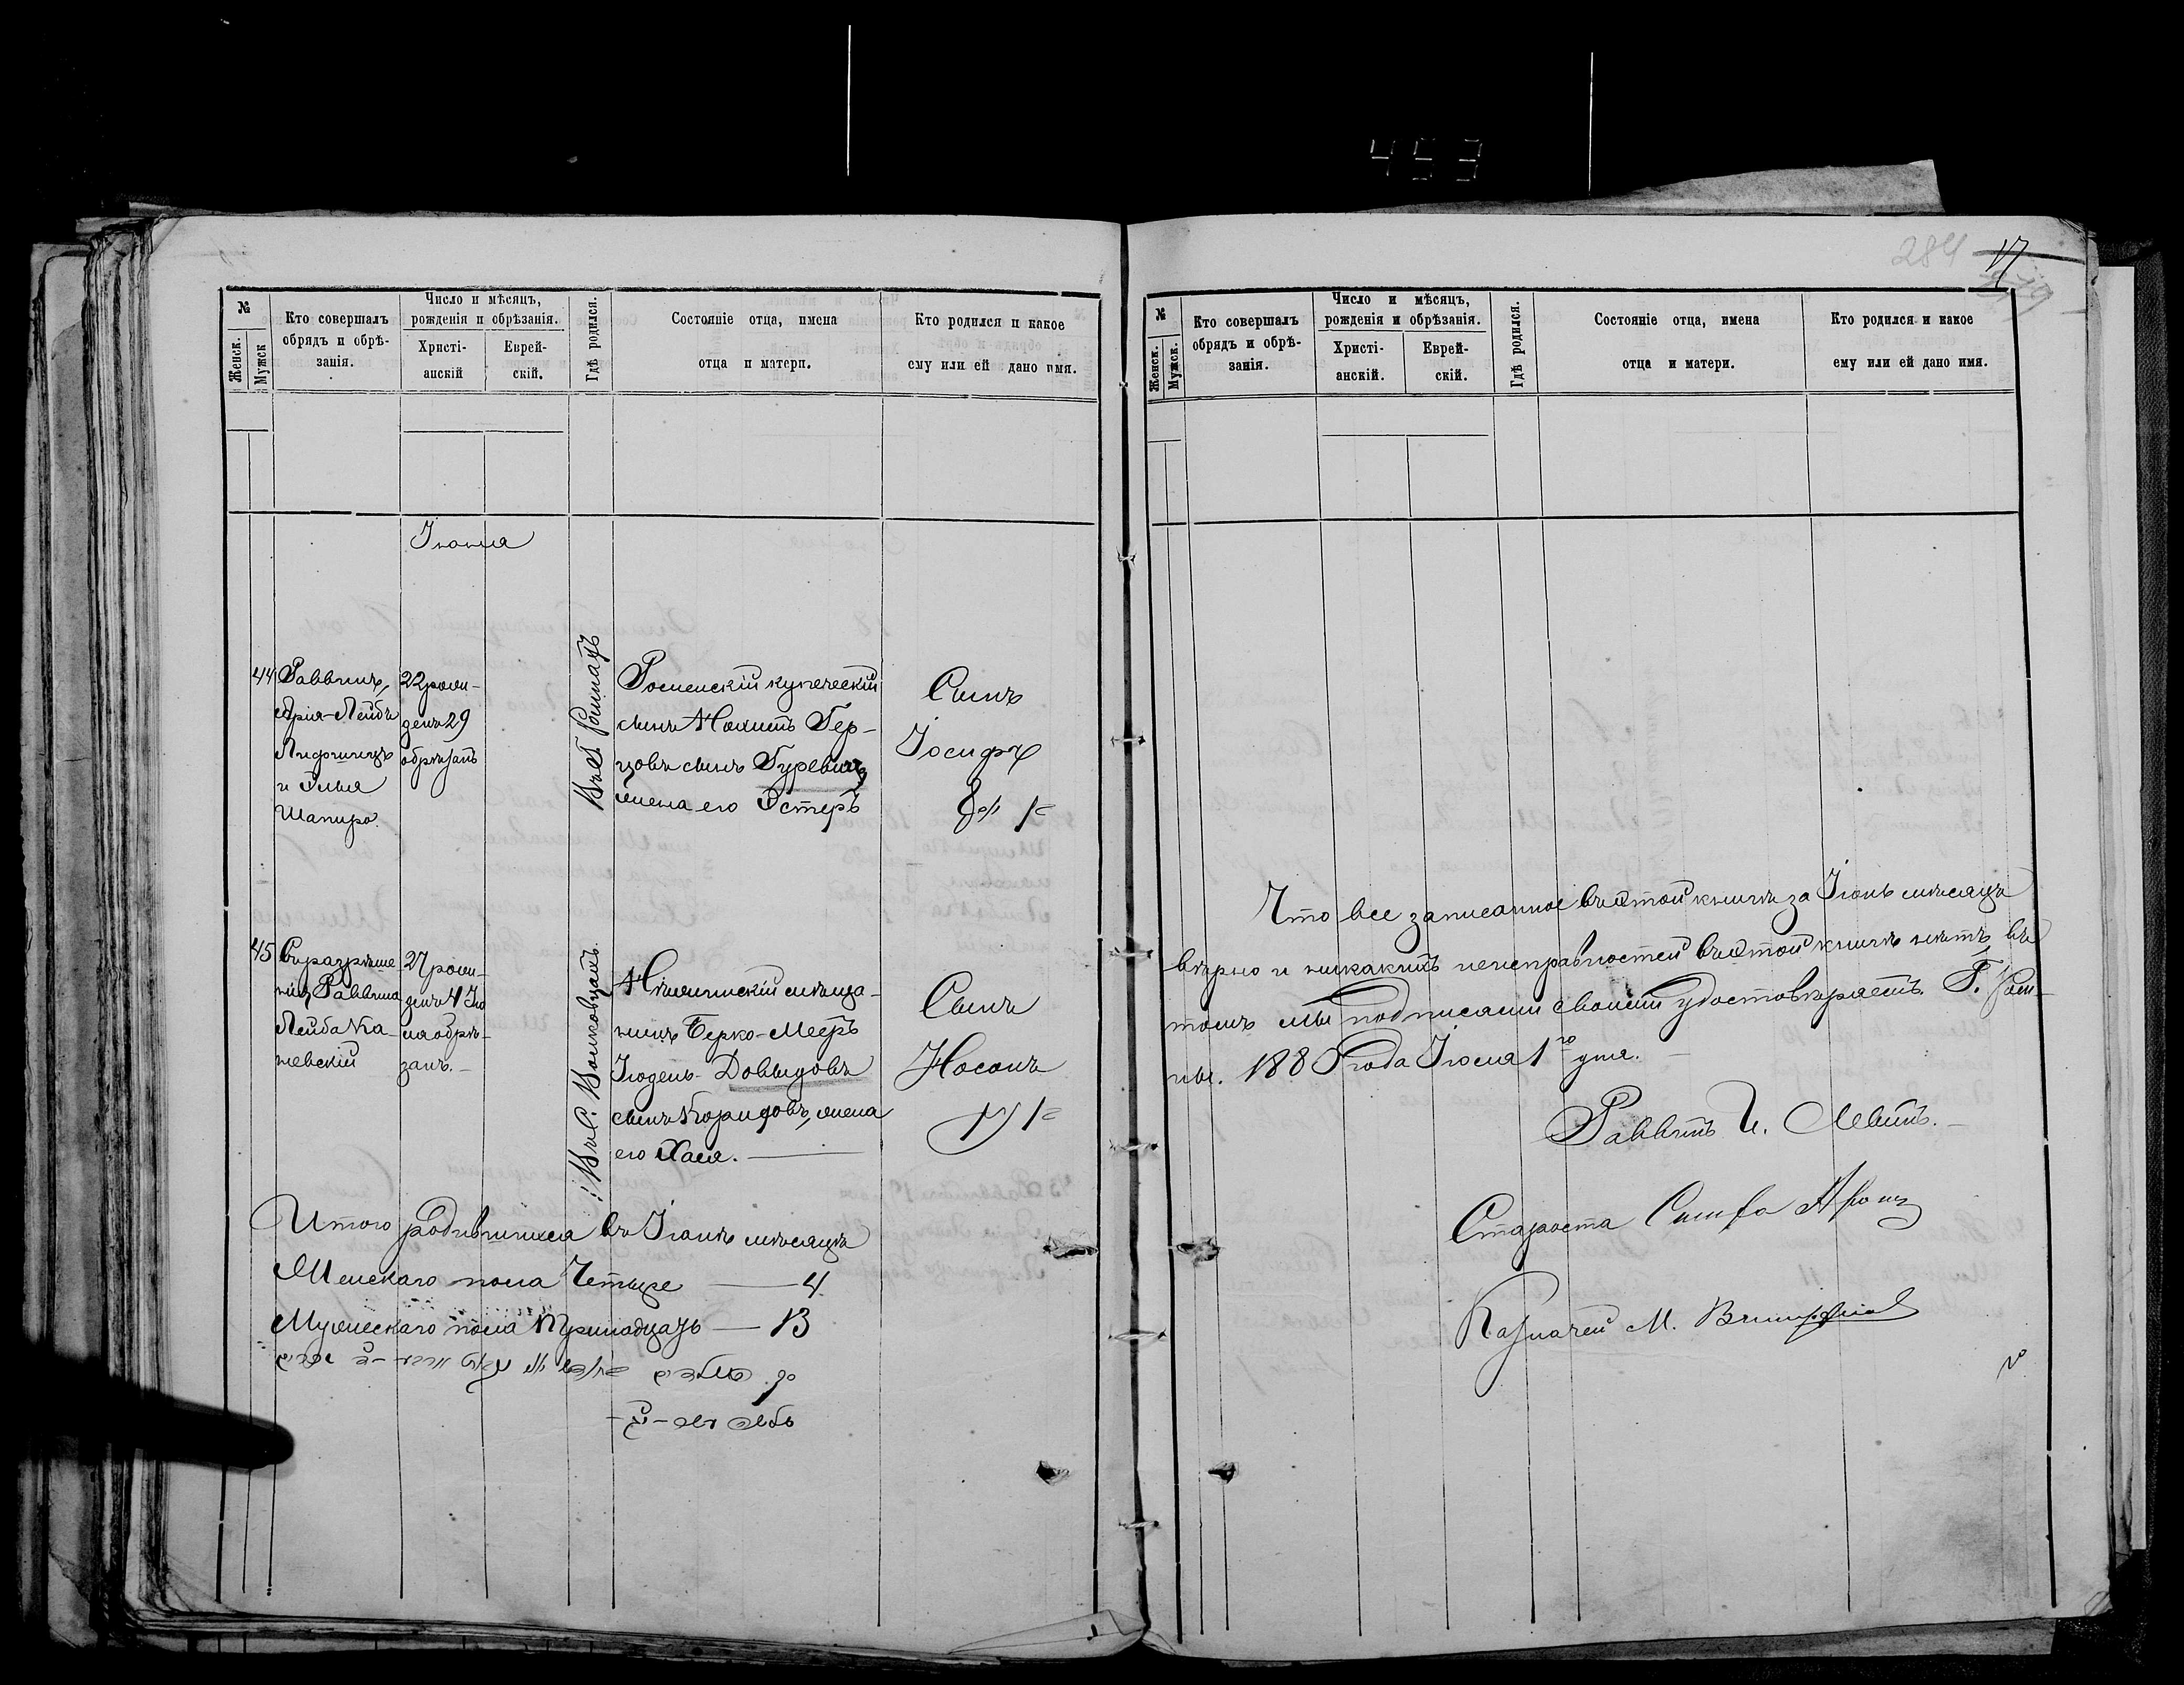 453
284
17
№
Женск.
Мужск
Кто совершалъ
обрядъ и обрѣ-
занія.
Число и мѣсяцъ,
рожденія и обрѣзанія.
Христі-
анскій
Еврей-
скій.
Гдѣ родился.
Состояніе отца, имена
отца и матери.
Кто родился и какое
ему или ей дано имя.
Іюня
44
Раввинъ,
Арія-Лейбъ
Лифшицъ
и Илья
Шапиро.
22 рож-
денъ 29
обрѣзанъ
Въ Г. Ромнахъ
Роменскій купеческій
сынъ Нохимъ Гер-
цовъ сынъ Гуревичъ
жена его Эстеръ
Сынъ
Іосифъ
45
Съ разрѣше
нія Раввина
Лейба Ка-
невскій
27 рож-
денъ 4 Ію
ля обрѣ-
занъ.
Въ С. Волковцахъ.
Нѣжинскій мѣща-
нинъ Берко-Мееръ
Іюдель-Довыдовъ
сынъ Коридовъ, жена
его Хая.
Сынъ
Носонъ
Итого родившихся въ Іюнѣ мѣсяцѣ
Женскаго пола Четыре — 4.
Мужескаго пола Тринадцать — 13
№
Женск.
Мужск.
Кто совершалъ
обрядъ и обрѣ-
занія.
Число и мѣсяцъ,
рожденія и обрѣзанія.
Христі-
анскій.
Еврей-
скій.
Гдѣ родился.
Состояніе отца, имена
отца и матери.
Кто родился и какое
ему или ей дано имя.
Что все записанное въ этой книгѣ за Іюнь мѣсяцъ
вѣрно и никакихъ неисправностей въ этой книгѣ нѣтъ, въ
томъ мы подписами своими удостовѣряемъ. Г. Ром-
ны. 1880 года Іюля 1го дня.
Раввинъ И. Левинъ.
Староста
Казначей М.